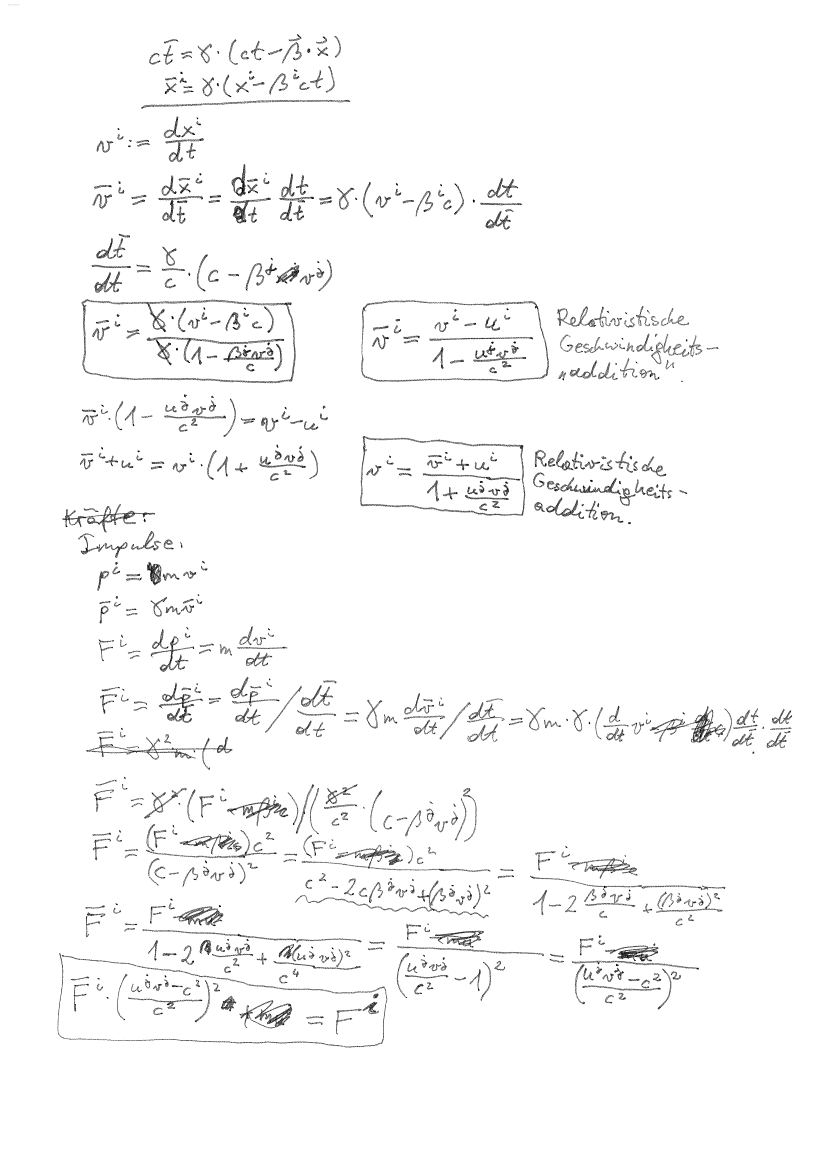 ct̄ = γ·(ct − β⃗·x⃗)
x̄ⁱ = γ·(xⁱ − βⁱct)
vⁱ := dxⁱ/dt
v̄ⁱ = dx̄ⁱ/dt̄ = dx̄ⁱ/dt dt/dt̄ = γ·(vⁱ − βⁱc)·dt/dt̄
dt̄/dt = γ/c·(c − βʲvʲ)
v̄ⁱ = γ·(vⁱ − βⁱc)/(γ·(1 − βʲvʲ/c))
v̄ⁱ = (vⁱ − uⁱ)/(1 − uʲvʲ/c²)
Relativistische
Geschwindigkeits-
„addition".
v̄ⁱ·(1 − uʲvʲ/c²) = vⁱ − uⁱ
v̄ⁱ + uⁱ = vⁱ·(1 + uʲvʲ/c²)
vⁱ = (v̄ⁱ + uⁱ)/(1 + uʲvʲ/c²)
Relativistische
Geschwindigkeits-
addition.
Kräfte:
Impulse:
pⁱ = mvⁱ
p̄ⁱ = γmv̄ⁱ
Fⁱ = dpⁱ/dt = m dvⁱ/dt
F̄ⁱ = dp̄ⁱ/dt̄ = dp̄ⁱ/dt / dt̄/dt = γm dv̄ⁱ/dt / dt̄/dt = γm·γ·(d/dt vⁱ) dt/dt̄·dt/dt̄
F̄ⁱ = γ²m·(d
F̄ⁱ = γ²·(Fⁱ)/(γ²/c²·(c − βʲvʲ)²)
F̄ⁱ = (Fⁱ)c²/(c − βʲvʲ)² = (Fⁱ)c²/(c² − 2cβʲvʲ + (βʲvʲ)²) = Fⁱ/(1 − 2 βʲvʲ/c + (βʲvʲ)²/c²)
F̄ⁱ = Fⁱ/(1 − 2 uʲvʲ/c² + (uʲvʲ)²/c⁴) = Fⁱ/(uʲvʲ/c² − 1)² = Fⁱ/((uʲvʲ − c²)/c²)²
F̄ⁱ·((uʲvʲ − c²)/c²)² = Fⁱ